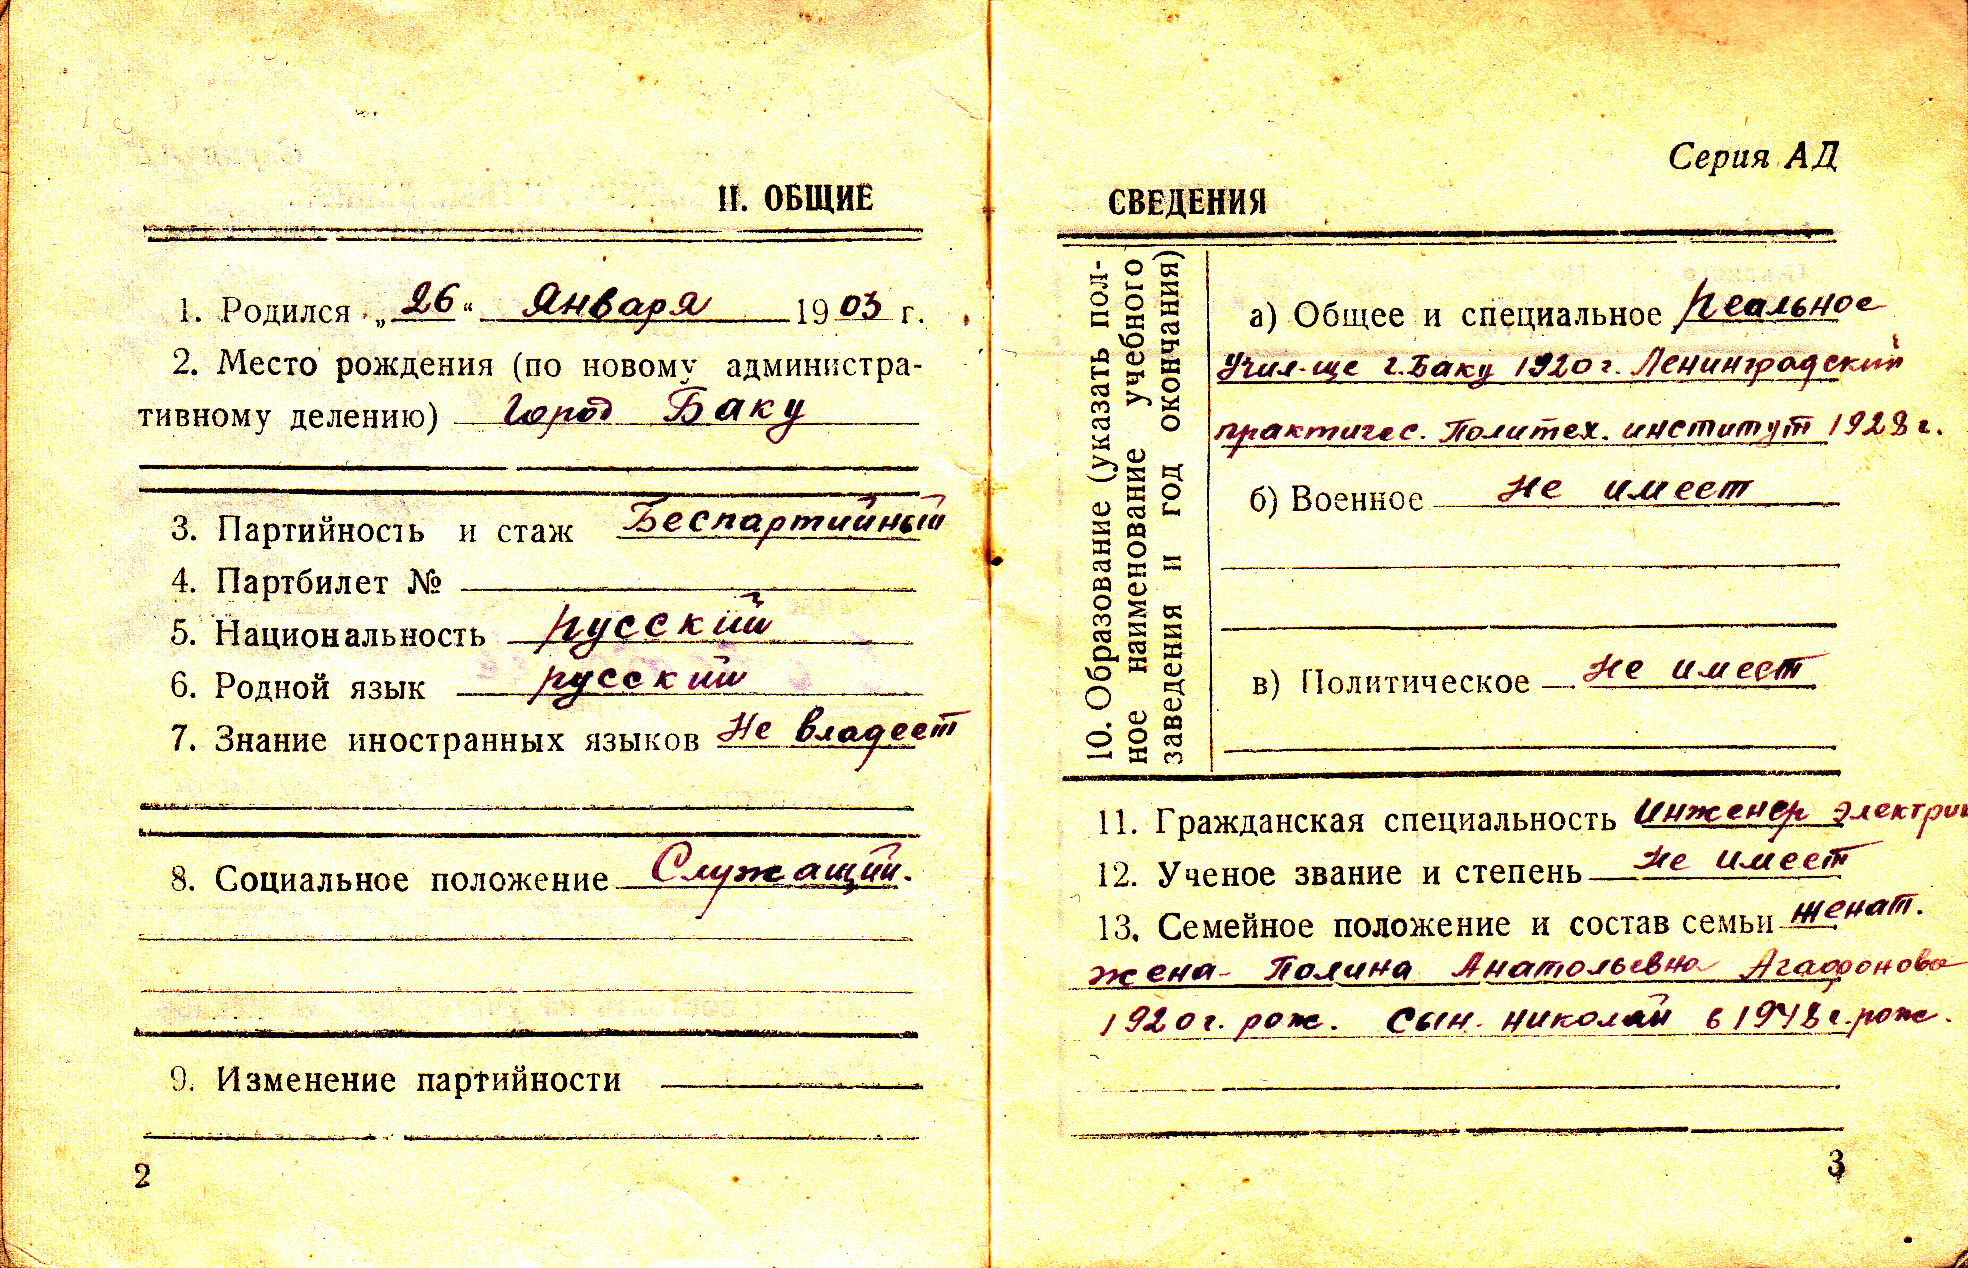 II. ОБЩИЕ
1. Родился „26“ Января 1903 г.
2. Место рождения (по новому администра-
тивному делению) город Баку
3. Партийность и стаж Беспартийный
4. Партбилет №
5. Национальность русский
6. Родной язык русский
7. Знание иностранных языков Не владеет
8. Социальное положение Служащий.
9. Изменение партийности
2
Серия АД
СВЕДЕНИЯ
10. Образование (указать пол-
ное наименование учебного
заведения и год окончания)
а) Общее и специальное Реальное
Учил-ще г. Баку 1920 г. Ленинградский
практичес. Политех. институт 1928 г.
б) Военное Не имеет
в) Политическое Не имеет
11. Гражданская специальность Инженер электрик
12. Ученое звание и степень Не имеет
13. Семейное положение и состав семьи женат.
жена - Полина Анатольевна Агафонова
1920 г. рож. Сын - Николай в 1948 г. рож.
3